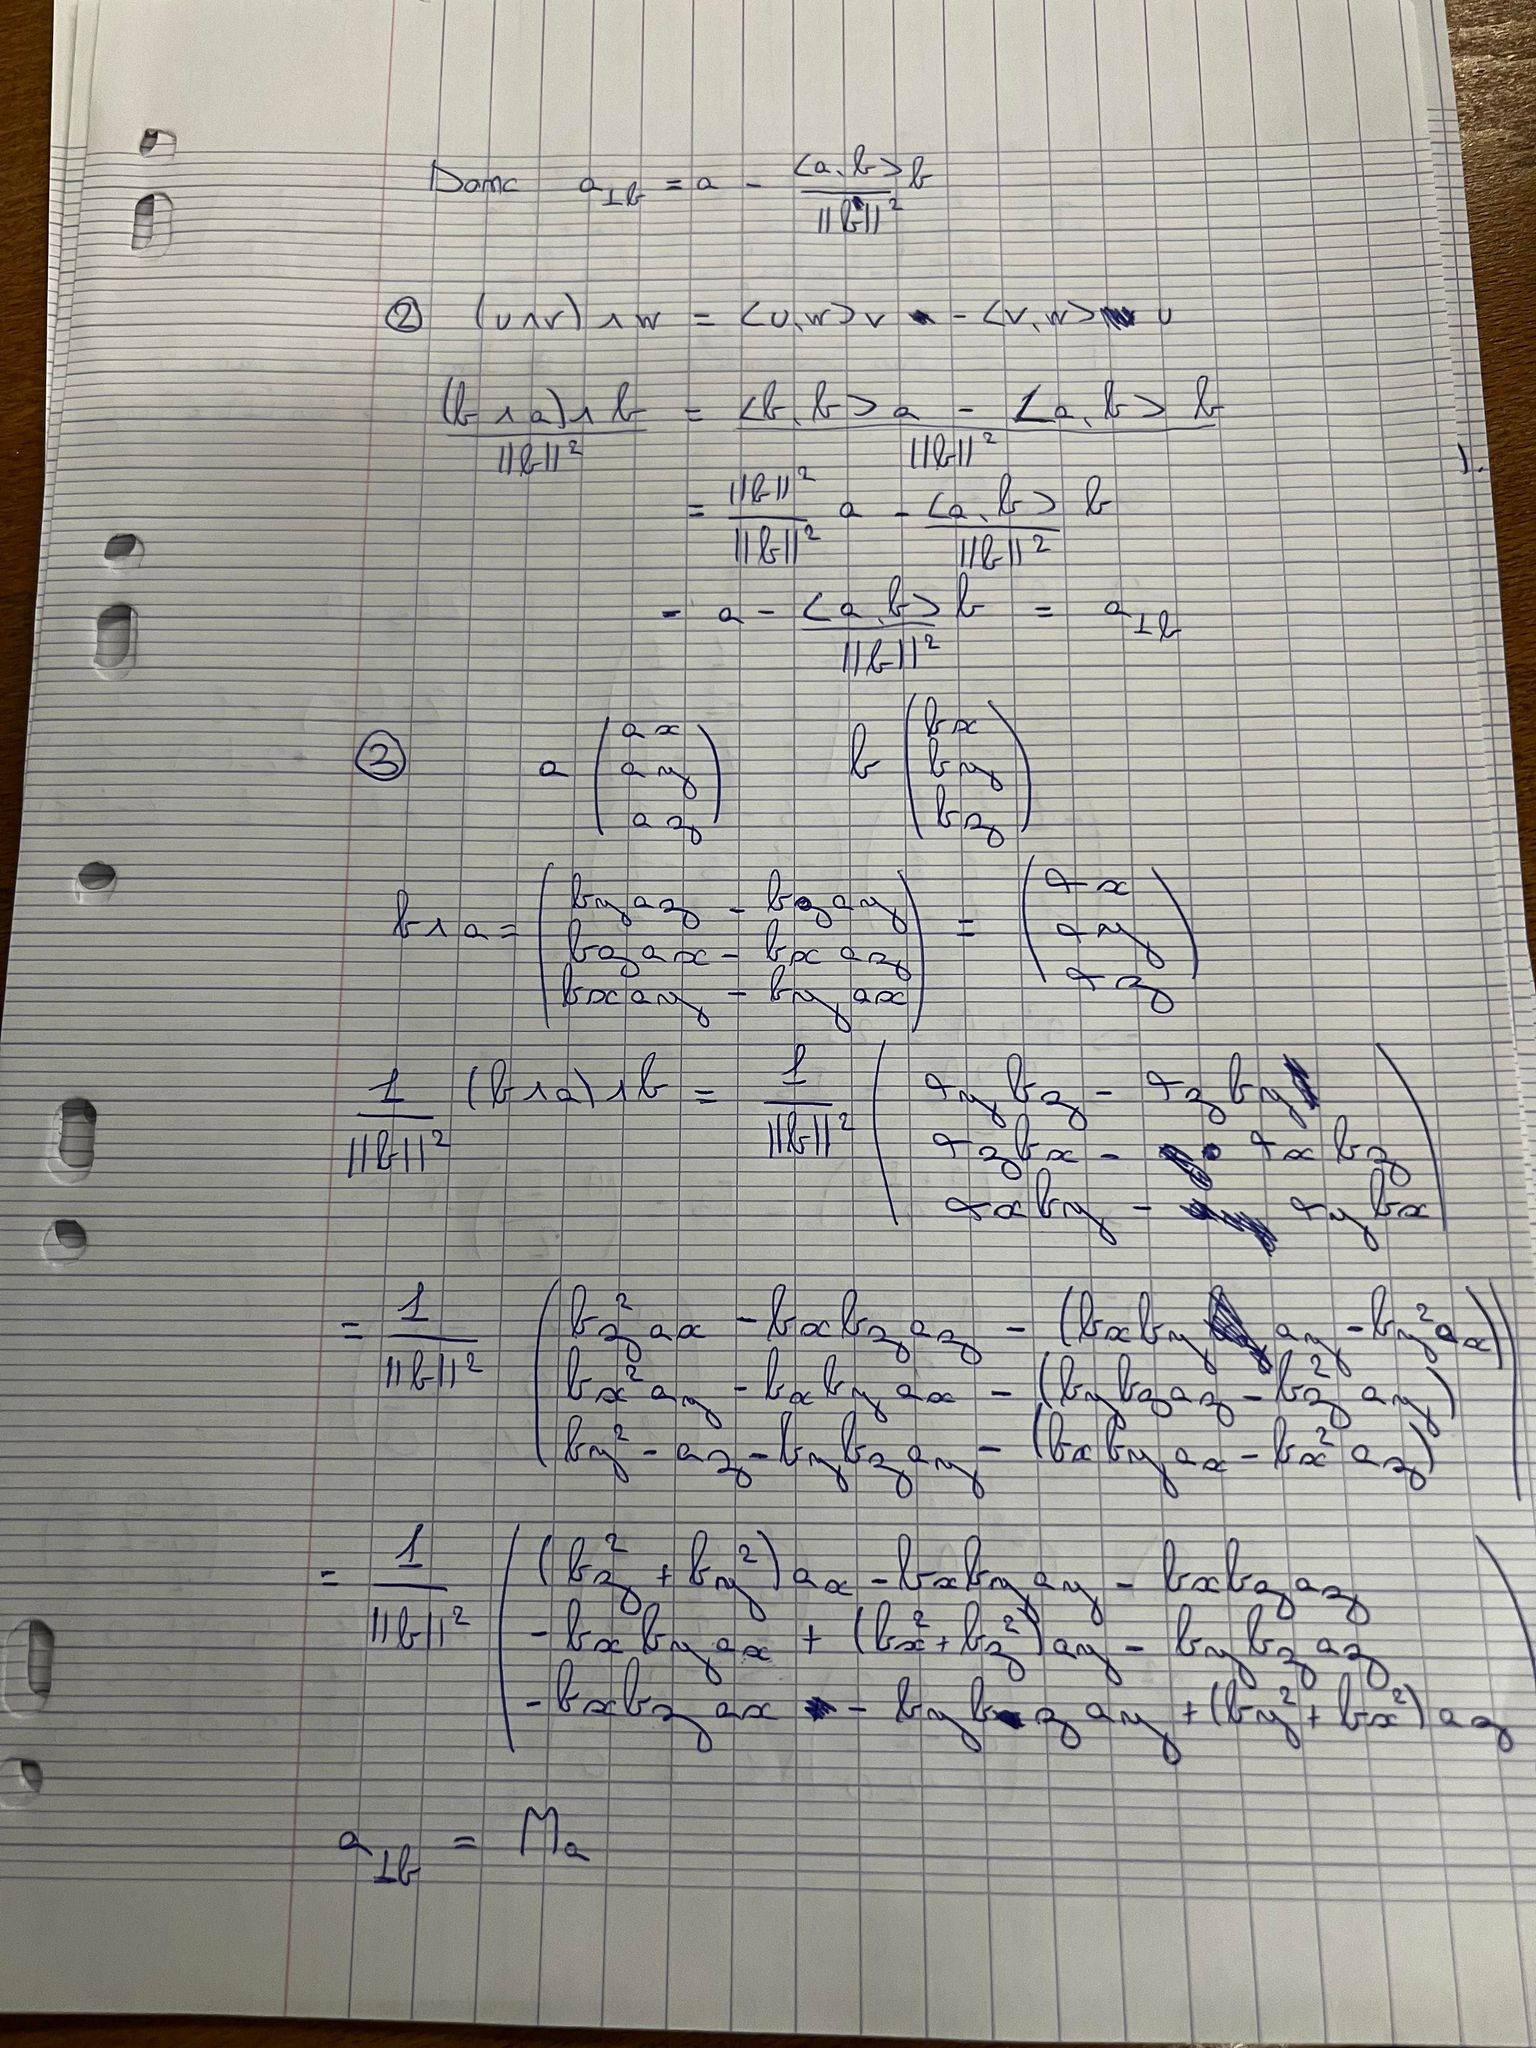 Donc a⊥b = a - <a,b>/||b||² b
② (u∧v)∧w = <u,w>v - <v,w> u
(b∧a)∧b / ||b||² = (<b,b>a - <a,b> b) / ||b||²
= ||b||²/||b||² a - <a,b>/||b||² b
= a - <a,b>/||b||² b = a⊥b
③ a (ax ay az) b (bx by bz)
b∧a = (by az - bz ay
bz ax - bx az
bx ay - by ax) = (αx αy αz)
1/||b||² (b∧a)∧b = 1/||b||² (αy bz - αz by
αz bx - αx bz
αx by - αy bx)
= 1/||b||² (bz² ax - bx bz az - (bx by ay - by² ax)
bx² ay - bx by ax - (by bz az - bz² ay)
by² - az - by bz ay - (bx by ax - bx² az))
= 1/||b||² ((bz² + by²) ax - bx by ay - bx bz az
- bx by ax + (bx² + bz²) ay - by bz az
- bx bz ax - by bz ay + (by² + bx²) az)
a⊥b = Ma